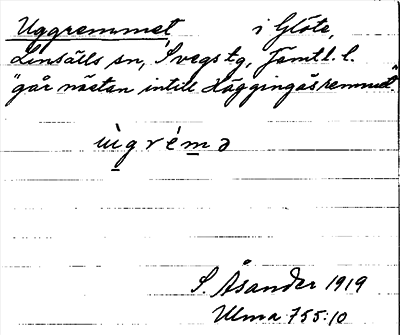 Uggremmet i Glöte,
Linsälls sn, Svegs tg, Jämtl. l.
"går nästan intill Häggingåsremmet".
ùgrémə
S. Åsander 1919
Ulma 755:10